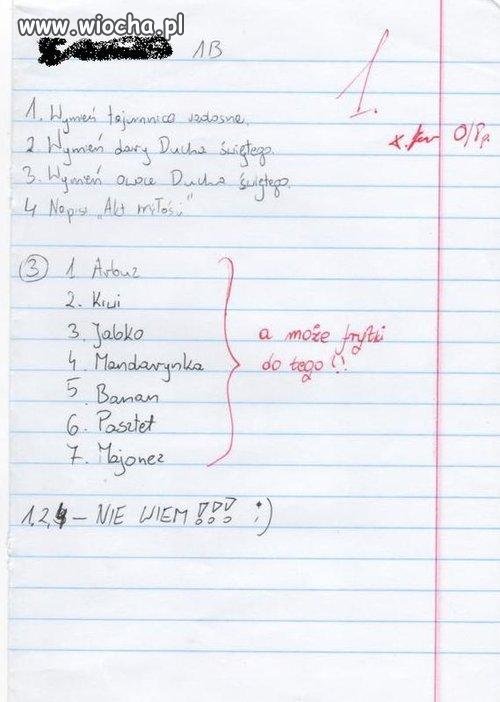 www.wiocha.pl
1B
1.
x. 0/8p.
1. Wymień tajemnice radosne.
2. Wymień dary Ducha świętego.
3. Wymień owoce Ducha świętego.
4 Napisz "Akt miłości"
3 1 Arbuz
2. Kiwi
3. Jabko
4. Mandarynka
5. Banan
6. Pasztet
7. Majonez
a może frytki
do tego!!
1,2,4 – NIE WIEM !!! :)